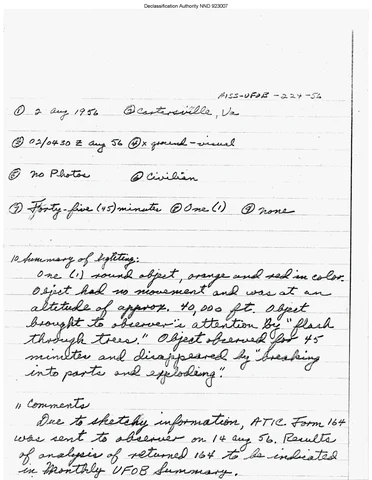 Declassification Authority NND 923007
AISS-UFOB-224-56
① 2 Aug 1956 ② Cartersville, Va
③ 02/0430 Z Aug 56 ④ x ground-visual
⑤ No Photos ⑥ Civilian
⑦ Forty-five (45) minutes ⑧ One (1) ⑨ None
10 Summary of Sighting:
One (1) round object, orange and red in color.
Object had no movement and was at an
altitude of approx. 40,000 ft. Object
brought to observer's attention by "flash
through trees." Object observed for 45
minutes and disappeared by "breaking
into parts and exploding."
11 Comments
Due to sketchy information, ATIC Form 164
was sent to observer on 14 Aug 56. Results
of analysis of returned 164 to be indicated
in Monthly UFOB Summary.